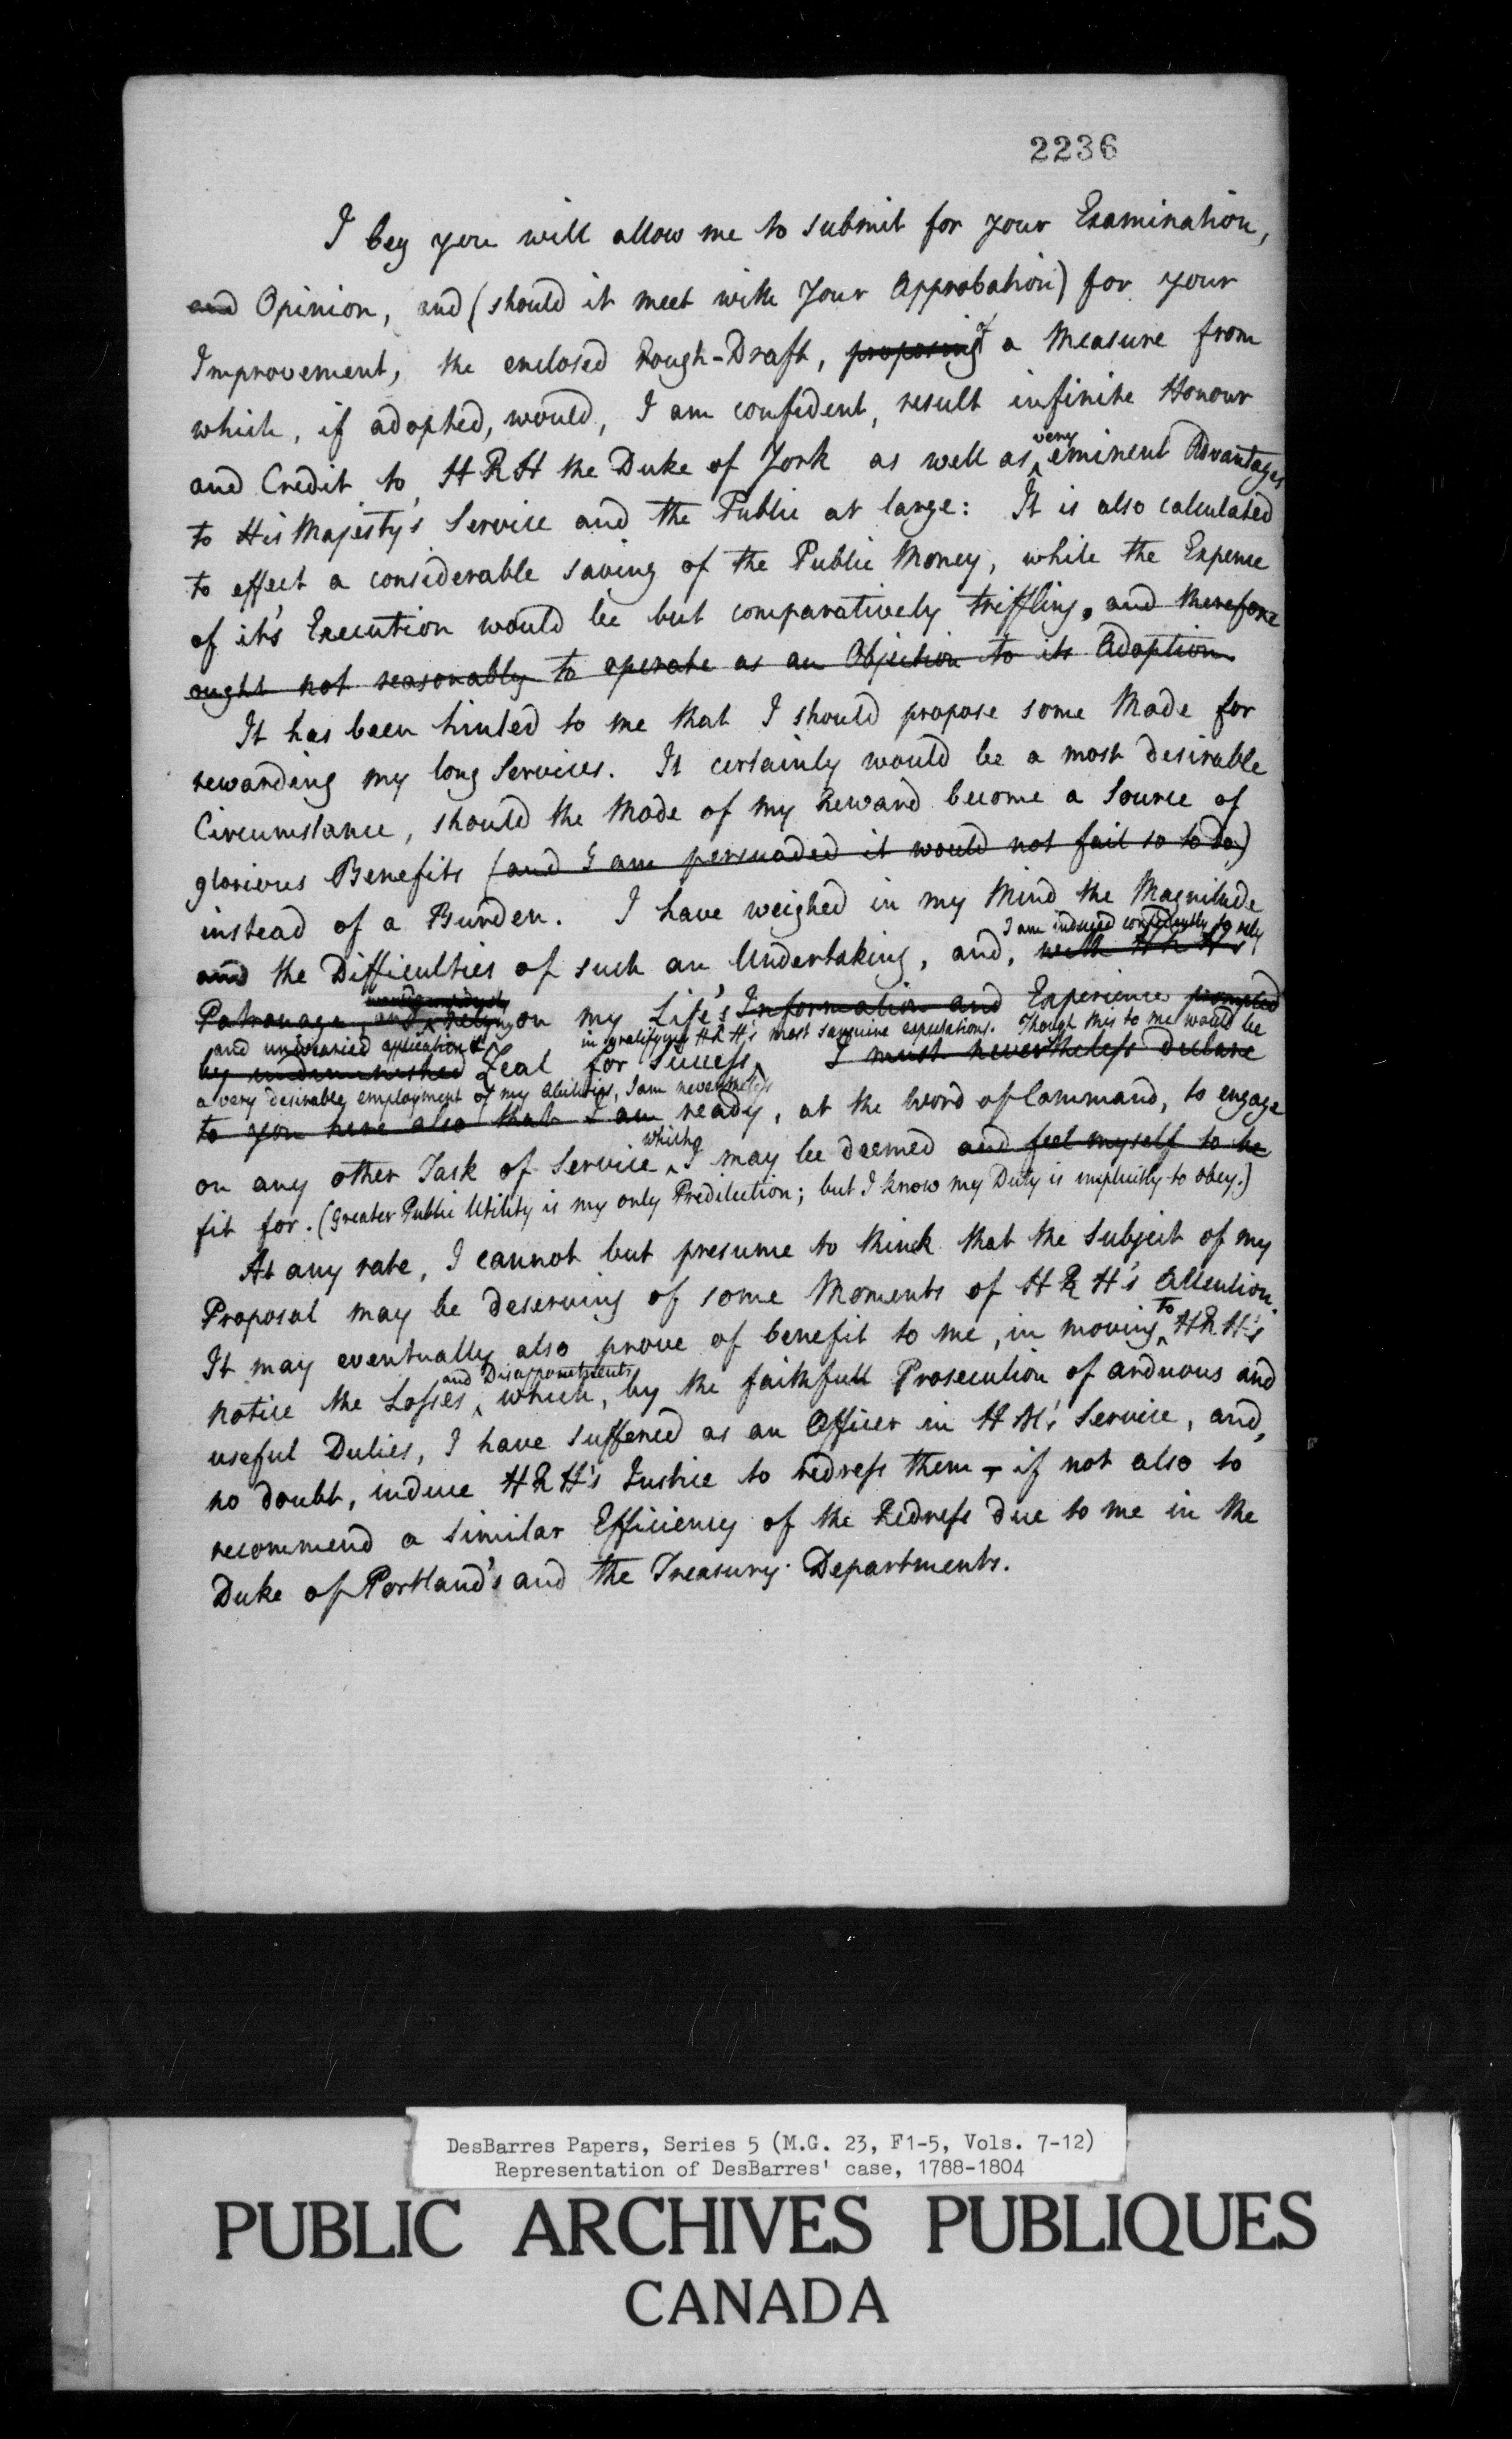 2236
I beg you will allow me to submit for your Examination,
and Opinion, and (should it meet with Your Approbation) for your
Improvement, the enclosed Rough-Draft, proposing of a Measure from
which, if adopted, would, I am confident, result infinite Honour
and Credit to HRH the Duke of York as well as very eminent Advantages
to His Majesty's Service and the Public at large: It is also calculated
to effect a considerable saving of the Public Money, while the Expence
of it's Execution would be but comparatively triffling, and therefore
ought not reasonably to operate as an Objection to its Adoption.
It has been hinted to me that I should propose some Mode for
rewarding my long Services. It certainly would be a most desirable
Circumstance, should the Mode of my Reward become a Source of
glorious Benefits (and I am persuaded it would not fail so to do)
instead of a Burden. I have weighed in my Mind the Magnitude
I am induced confidently to rely
and the Difficulties of such an Undertaking, and, with HRH's
Patronage, and I relying on my Life's Information and Experience prompted
and unwearied application & in gratifying HRH's most sanguine expectations. Though this to me would be
by undiminished Zeal for Success. I must nevertheless declare
a very desirable employment of my abilities, I am nevertheless
to you here also that I am ready, at the Word of Command, to engage
on any other Task of Service which I may be deemed and feel myself to be
fit for. (Greater Public Utility is my only Predilection; but I know my Duty is implicitly to obey.)
At any rate, I cannot but presume to think that the Subject of my
Proposal may be deserving of some Moments of HRH's Attention.
It may eventually also prove of benefit to me, in moving to HRH's
notice the Losses and Disappointments which, by the faithfull Prosecution of arduous and
useful Duties, I have suffered as an Officer in HM's Service, and,
no doubt, induce HRH's Justice to redress them – if not also to
recommend a similar Efficiency of the Redress due to me in the
Duke of Portland's and the Treasury Departments.
DesBarres Papers, Series 5 (M.G. 23, F1-5, Vols. 7-12)
Representation of DesBarres' case, 1788-1804
PUBLIC ARCHIVES PUBLIQUES
CANADA